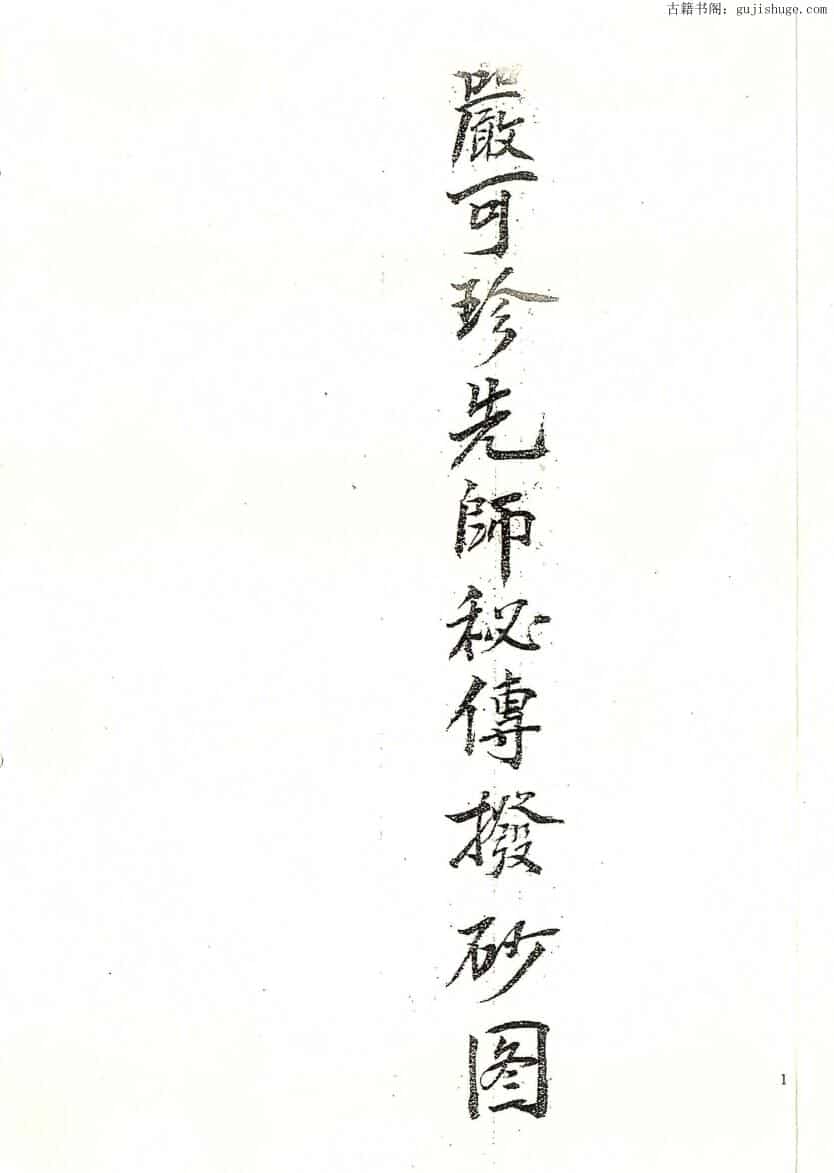 古籍书阁：gujishuge.com
嚴可珍先師秘傳撥砂图
1